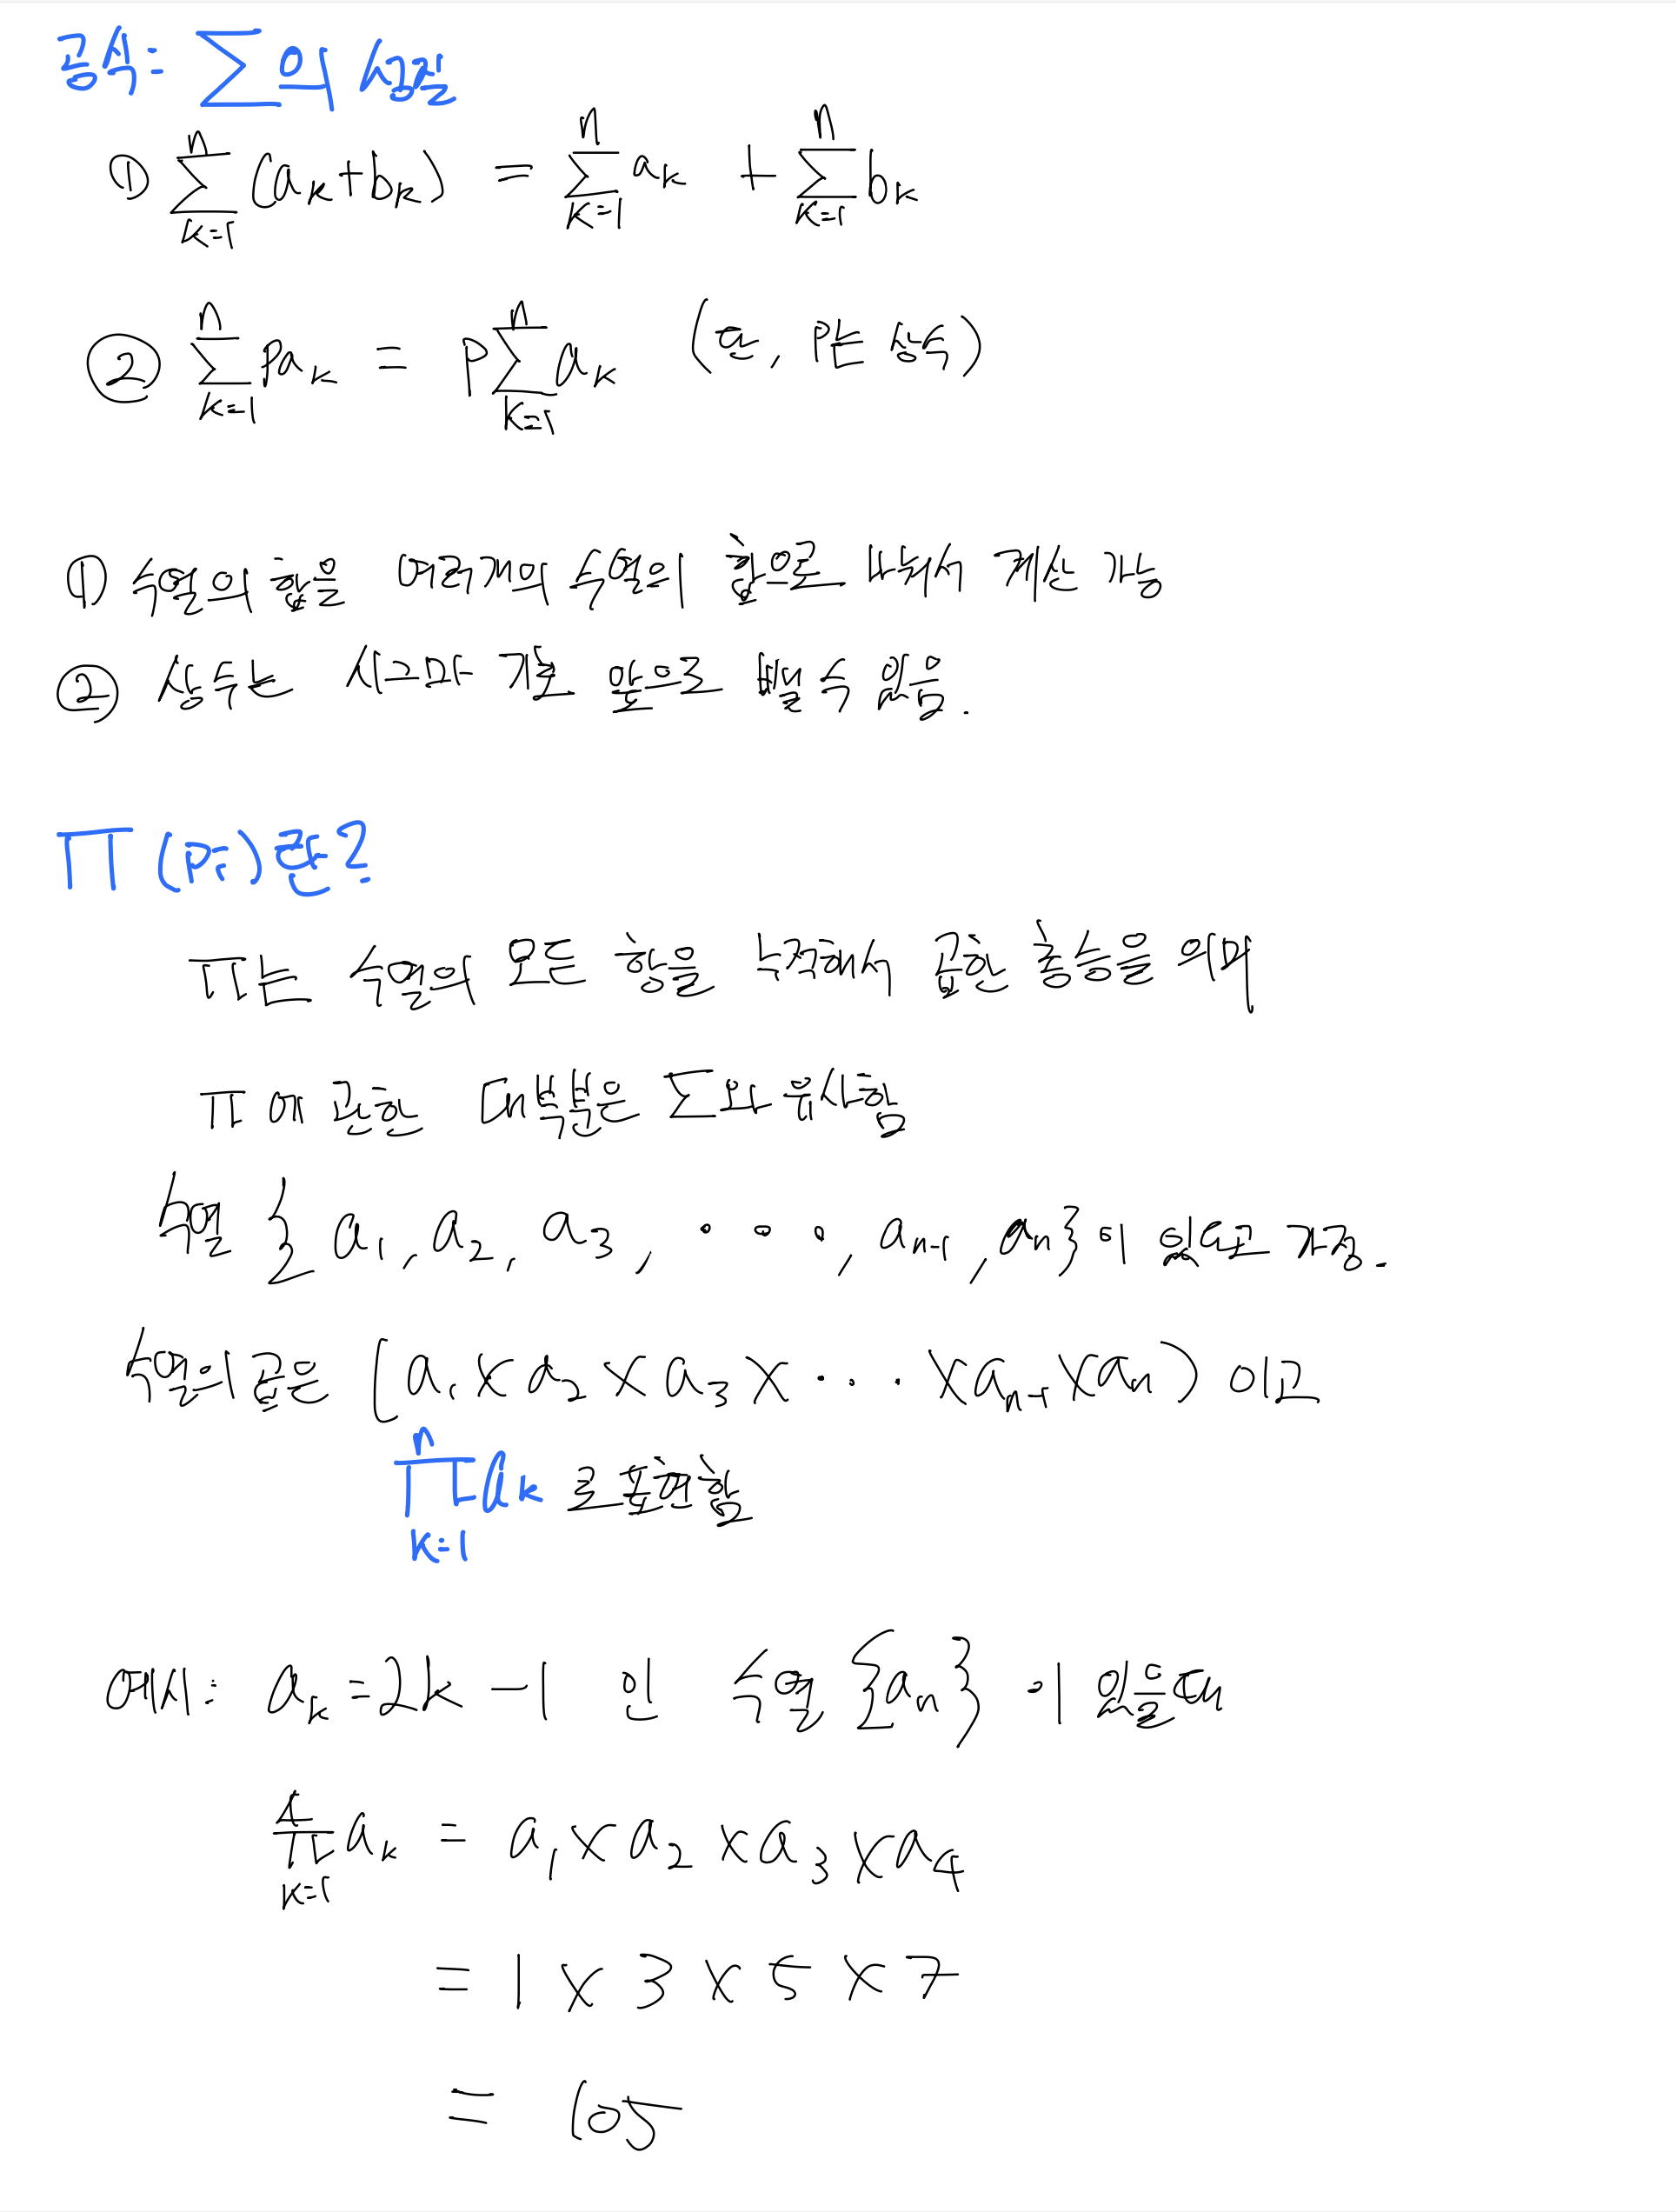 공식: ∑의 성질
① ∑_{k=1}^{n} (a_k + b_k) = ∑_{k=1}^{n} a_k + ∑_{k=1}^{n} b_k
② ∑_{k=1}^{n} p a_k = p ∑_{k=1}^{n} a_k (단, p는 상수)
① 수열의 합을 여러개의 수열의 합으로 나눠서 계산 가능
② 상수는 시그마 기호 앞으로 뺄 수 있음.
∏ (파이)란?
∏는 수열의 모든 항을 곱한 함수을 의미
∏에 관한 대부분은 ∑와 유사함
수열 {a_1, a_2, a_3, ···, a_{n-1}, a_n}이 있다고 가정.
수열의 곱은 (a_1 × a_2 × a_3 × ··· × a_{n-1} × a_n) 이고
∏_{k=1}^{n} a_k 로 표현함
예시: a_k = 2k - 1 인 수열 {a_n} 이 있을때
∏_{k=1}^{4} a_k = a_1 × a_2 × a_3 × a_4
= 1 × 3 × 5 × 7
= 105